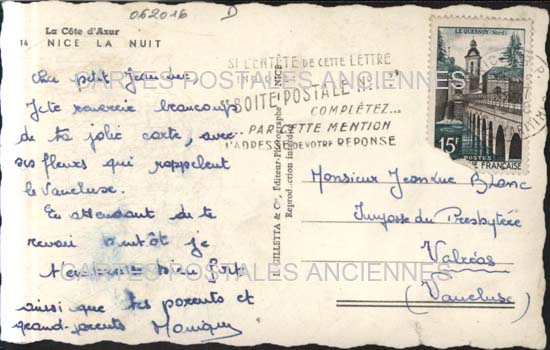 062016 D
La Côte d'Azur
14 NICE LA NUIT
Cher petit Jeanluc
Je te remercie beaucoup
de ta jolie carte, avec
ses fleurs qui rappellent
le Vaucluse.
En attendant de te
revoir bientôt je
t'embrasse bien fort
ainsi que tes parents et
grand-parents Monique
L. GILLETTA & Cie, Éditeur-Photographe, NICE
Reproduction interdite
SI L'ENTÊTE DE CETTE LETTRE
"BOITE POSTALE N° ?"
COMPLÉTEZ...
...PAR CETTE MENTION
L'ADRESSE DE VOTRE RÉPONSE
LE QUESNOY (Nord)
15F
POSTES
FRANÇAISE
Monsieur Jeanluc Blanc
Impasse du Presbytère
Valréas
(Vaucluse)
CARTES POSTALES ANCIENNES
CARTES POSTALES ANCIENNES
CARTES POSTALES ANCIENNES